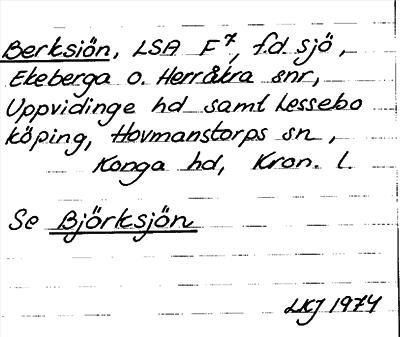 Berksjön, LSA F7, f.d. sjö,
Ekeberga o. Herråkra snr,
Uppvidinge hd samt Lessebo
köping, Hovmanstorps sn,
Konga hd, Kron. l.
Se Björksjön
LKJ 1974